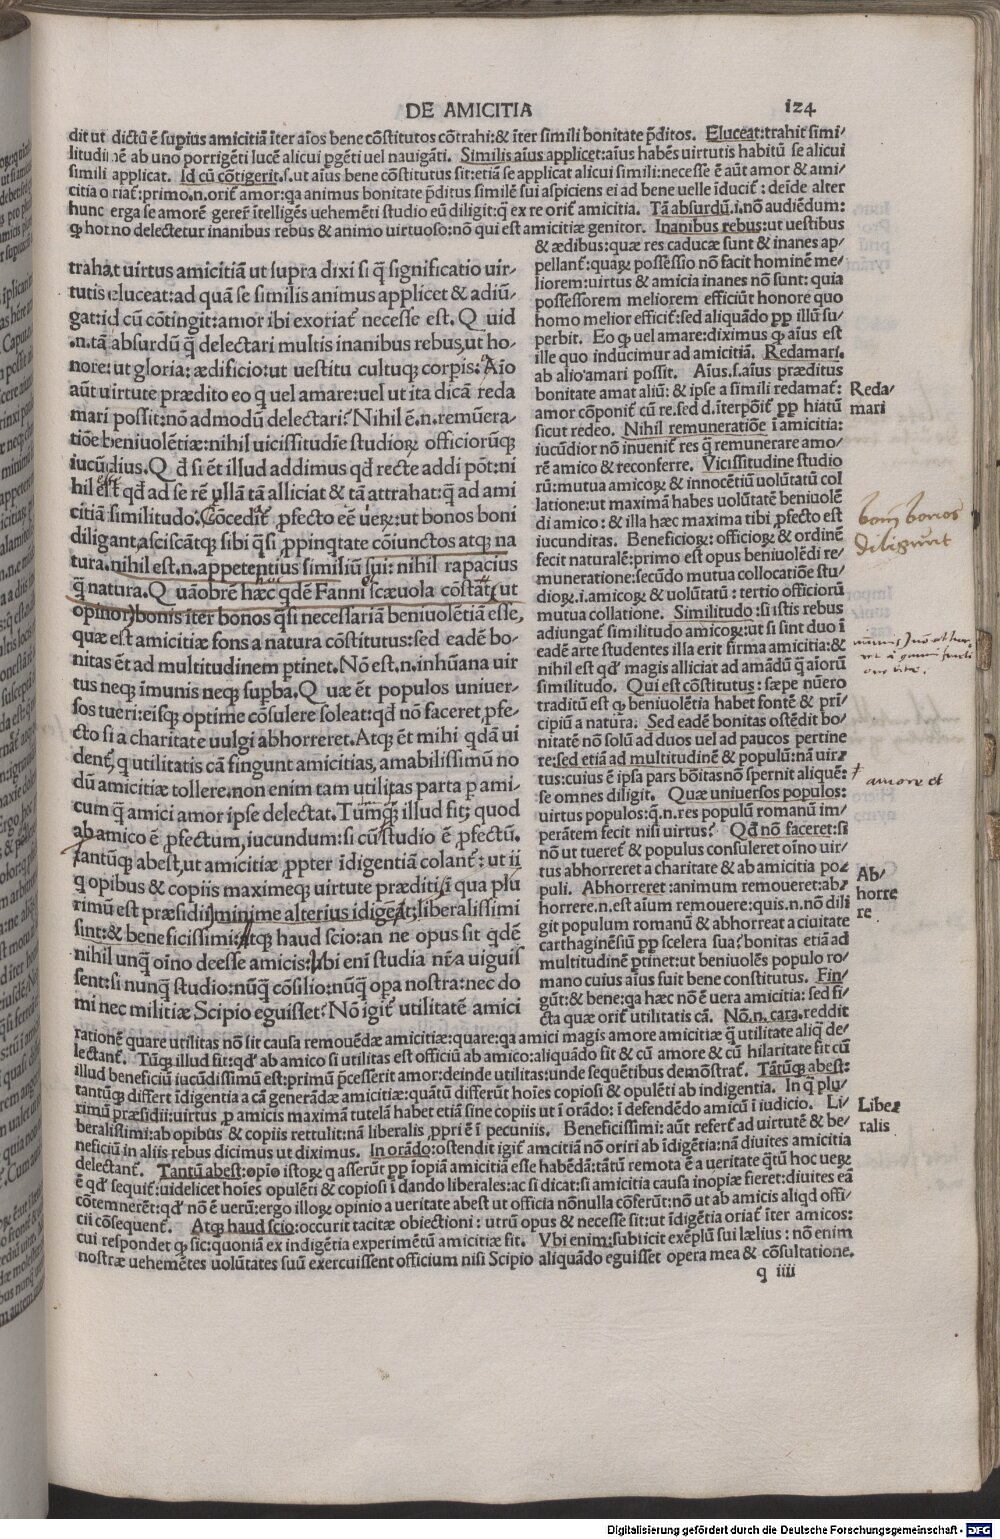 DE AMICITIA
124
dit ut dictū ē supius amicitiā īter aīos bene cōstitutos cōtrahi:& īter simili bonitate p̄ditos. Eluceat:trahit simi/
litudinē ab uno porrigēti lucē alicui pgēti uel nauigāti. Similis aīus applicet:aīus habēs uirtutis habitū se alicui
simili applicat. Id cū cōtigerit.s.ut aīus bene cōstitutus sit:etiā se applicat alicui simili:necesse ē aūt amor & ami/
citia oriat̃:primo.n.orit̃ amor:qa animus bonitate p̄ditus similē sui aspiciens ei ad bene uelle īducit̃: deīde alter
hunc erga se amorē gerere ītelligēs uehemēti studio eū diligit:q̄ ex re orit̃ amicitia. Tā absurdū.i.nō audiēdum:
ꝙ homo delectetur inanibus rebus & animo uirtuoso:nō qui est amicitiæ genitor. Inanibus rebus:ut uestibus
trahat uirtus amicitiā ut supra dixi si q̄ significatio uir-
tutis eluceat:ad quā se similis animus applicet & adiū/
gat:id cū cōtingit:amor ibi exoriat̃ necesse est. Quid
.n.tā absurdū q̄ delectari multis inanibus rebus,ut ho-
nore:ut gloria:ædificio:ut uestitu cultuqꝫ corpis:Aīo
aūt uirtute prædito eo q uel amare:uel ut ita dicā reda
mari possit:nō admodū delectari? Nihil ē.n.remūera-
tiōe beniuolētiæ:nihil uicissitudīe studioꝝ officiorūqꝫ
iucūdius.Qd si ēt illud addimus qd recte addi pōt:ni
hil est qd ad se rē ullā tā alliciat & tā attrahat:q̄ ad ami
citiā similitudo.Cōcedit̃ pfecto eē ueꝝ:ut bonos boni
diligant,asciscātqꝫ sibi q̄si ꝓpinqtate cōiunctos atqꝫ na
tura.nihil est.n.appetentius similiū sui:nihil rapacius
q̄ natura.Quāobrē hæc qdē Fanni & scæuola cōstat(ut
opinor)bonis iter bonos q̄si necessariā beniuolētiā esse,
quæ est amicitiæ fons a natura cōstitutus:sed eadē bo-
nitas ēt ad multitudinem ptinet.Nō est.n.inhūana uir
tus neqꝫ īmunis neqꝫ supba.Quæ ēt populos uniuer-
sos tueri:eisqꝫ optime cōsulere soleat:qd nō faceret,pfe-
cto si a charitate uulgi abhorreret.Atqꝫ ēt mihi qdā ui
dent̃,q utilitatis cā fingunt amicitias,amabilissimū no
dū amicitiæ tollere.non enim tam utilitas parta p ami-
cum q̄ amici amor ipse delectat.Tūmqꝫ illud fit: quod
ab amico ē pfectum,iucundum:si cū studio ē pfectū.
Tantūqꝫ abest,ut amicitiæ ꝓpter īdigentiā colant̃: ut ii
q opibus & copiis maximeqꝫ uirtute præditi,ī qua plu
rimū est præsidii)minime alterius idigeāt;liberalissimi
sint:& beneficissimi:Atqꝫ haud scio:an ne opus sit qdē
nihil unq̄ oīno deesse amicis:Vbi enī studia nr̄a uiguis
sent:si nunq̄ studio:nūq̄ cōsilio:nūq̄ opa nostra:nec do
mi nec militiæ Scipio eguisset? Nō igit̃ utilitatē amici
& ædibus:quæ res caducæ sunt & inanes ap/
pellant̃:quaꝝ possessio nō facit hominē me/
liorem:uirtus & amicia inanes nō sunt: quia
possessorem meliorem efficiūt honore quo
homo melior efficit̃:sed aliquādo ꝓp illū su/
perbit. Eo ꝙ uel amare:diximus ꝙ aīus est
ille quo inducimur ad amicitiā. Redamari.
ab alio amari possit. Aīus.s.aīus præditus
bonitate amat aliū: & ipse a simili redamat̃:
amor cōponit̃ cū re.sed d.iterpōit̃ ꝓp hiatū
sicut redeo. Nihil remuneratiōe ī amicitia:
iucūdior nō inuenit̃ res q̄ remunerare amo/
rē amico & reconferre. Vicissitudine studio
rū:mutua amicoꝝ & innocētiū uolūtatū col
latione:ut maximā habes uolūtatē beniuolē
di amico: & illa hæc maxima tibi pfecto est
iucunditas. Beneficioꝝ: officioꝝ & ordinē
fecit naturalē:primo est opus beniuolēdi re/
muneratione:secūdo mutua collocatiōe stu/
dioꝝ.i.amicoꝝ & uolūtatū: tertio officiorū
mutua collatione. Similitudo:si istis rebus
adiungat̃ similitudo amicoꝝ:ut si sint duo ī
eadē arte studentes illa erit firma amicitia:&
nihil est qd magis alliciat ad amādū q̄ aīorū
similitudo. Qui est cōstitutus: sæpe nūero
traditū est ꝙ beniuolētia habet fontē & prī/
cipiū a natura. Sed eadē bonitas ostēdit bo/
nitatē nō solū ad duos uel ad paucos pertine
re:sed etiā ad multitudinē & populū:nā uir/
tus:cuius ē ipsa pars bōitas nō spernit aliquē:
se omnes diligit. Quæ uniuersos populos:
uirtus populos:q.n.res populū romanū im/
perātem fecit nisi uirtus? Qd nō faceret:si
nō ut tueret̃ & populus consuleret oīno uir/
tus abhorreret a charitate & ab amicitia po/
puli. Abhorreret:animum remoueret:ab/
horrere.n.est aīum remouere:quis.n.nō dili
git populum romanū & abhorreat a ciuitate
carthaginēsiū ꝓp scelera sua? bonitas etiā ad
multitudinē ptinet:ut beniuolēs populo ro/
mano cuius aīus fuit bene constitutus. Fin/
gūt:& bene:qa hæc nō ē uera amicitia:sed fi/
cta quæ orit̃ utilitatis cā. Nō.n.cara.reddit
Reda/
mari
boni bonos
diligunt
† amore et
Ab/
horre
re
rationē quare utilitas nō sit causa remouēdæ amicitiæ:quare:qa amici magis amore amicitiæ q̄ utilitate aliq̄ de/
lectant̃. Tūqꝫ illud fit:qd ab amico si utilitas est officiū ab amico:aliquādo fit & cū amore & cū hilaritate fit cū
illud beneficiū iucūdissimū est:primū p̄cesserit amor:deinde utilitas:unde sequētibus demōstrat̃. Tātūqꝫ abest:
tantūqꝫ differt īdigentia a cā generādæ amicitiæ:quātū differūt hoīes copiosi & opulēti ab indigentia. In q̄ plu/
rimū præsidii:uirtus p amicis maximā tutelā habet etiā sine copiis ut ī orādo: ī defendēdo amicū ī iudicio. Li/
beralissimi:ab opibus & copiis rettulit:nā liberalis ꝓpri ē ī pecuniis. Beneficissimi: aūt refert̃ ad uirtutē & be/
neficiū in aliis rebus dicimus ut diximus. In orādo:ostendit igit̃ amcitiā nō oriri ab īdigētia:nā diuites amicitia
delectant̃. Tantū abest:opīo istoꝝ q asserūt ꝓp īopiā amicitiā esse habēdā:tātū remota ē a ueritate q̄tū hoc ueꝝ
ē qd sequit̃:uidelicet hoīes opulēti & copiosi ī dando liberales:ac si dicat:si amicitia causa inopiæ fieret:diuites eā
cōtemnerēt:qd nō ē uerū:ergo illoꝝ opinio a ueritate abest ut officia nōnulla cōferūt:nō ut ab amicis aliqd offi/
cii cōsequent̃. Atqꝫ haud scio:occurit tacitæ obiectioni: utrū opus & necesse sit:ut īdigētia oriat̃ iter amicos:
cui respondet ꝙ sic:quoniā ex indigētia experimētū amicitiæ fit. Vbi enim:subiicit exēplū sui lælius: nō enim
nostræ uehemētes uolūtates suū exercuissent officium nisi Scipio aliquādo eguisset opera mea & cōsultatione.
Libe/
ralis
q iiii
Digitalisierung gefördert durch die Deutsche Forschungsgemeinschaft - DFG